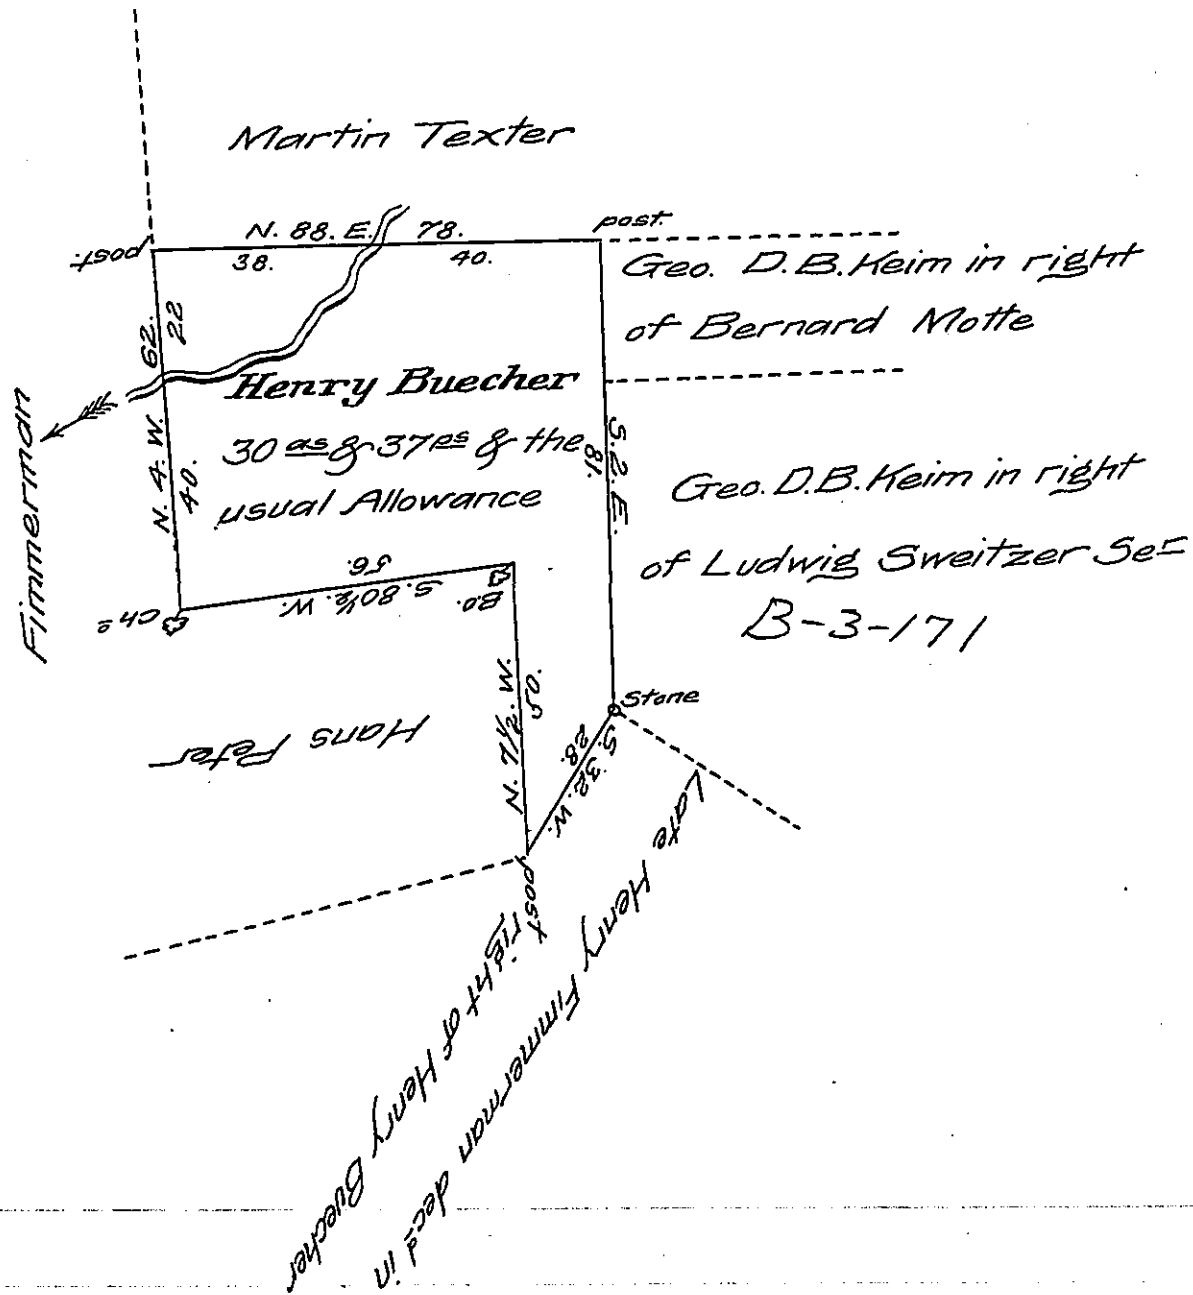 Martin Texter
N. 88. E. 78.
38. 40.
post.
post.
Geo. D.B. Keim in right
of Bernard Motte
N. 4. W. 62.
40. 22
Fimmerman
Henry Buecher
30 as & 37 ps & the
usual Allowance
S. 2. E.
81.
Geo. D.B. Keim in right
of Ludwig Sweitzer Se=
B-3-171
56.
S. 80½. W.
Bo.
Chs
Hans Peter
N. 1½. W.
50.
Stone
S. 32. W.
28.
post
Late Henry Fimmerman decd in
right of Henry Buecher